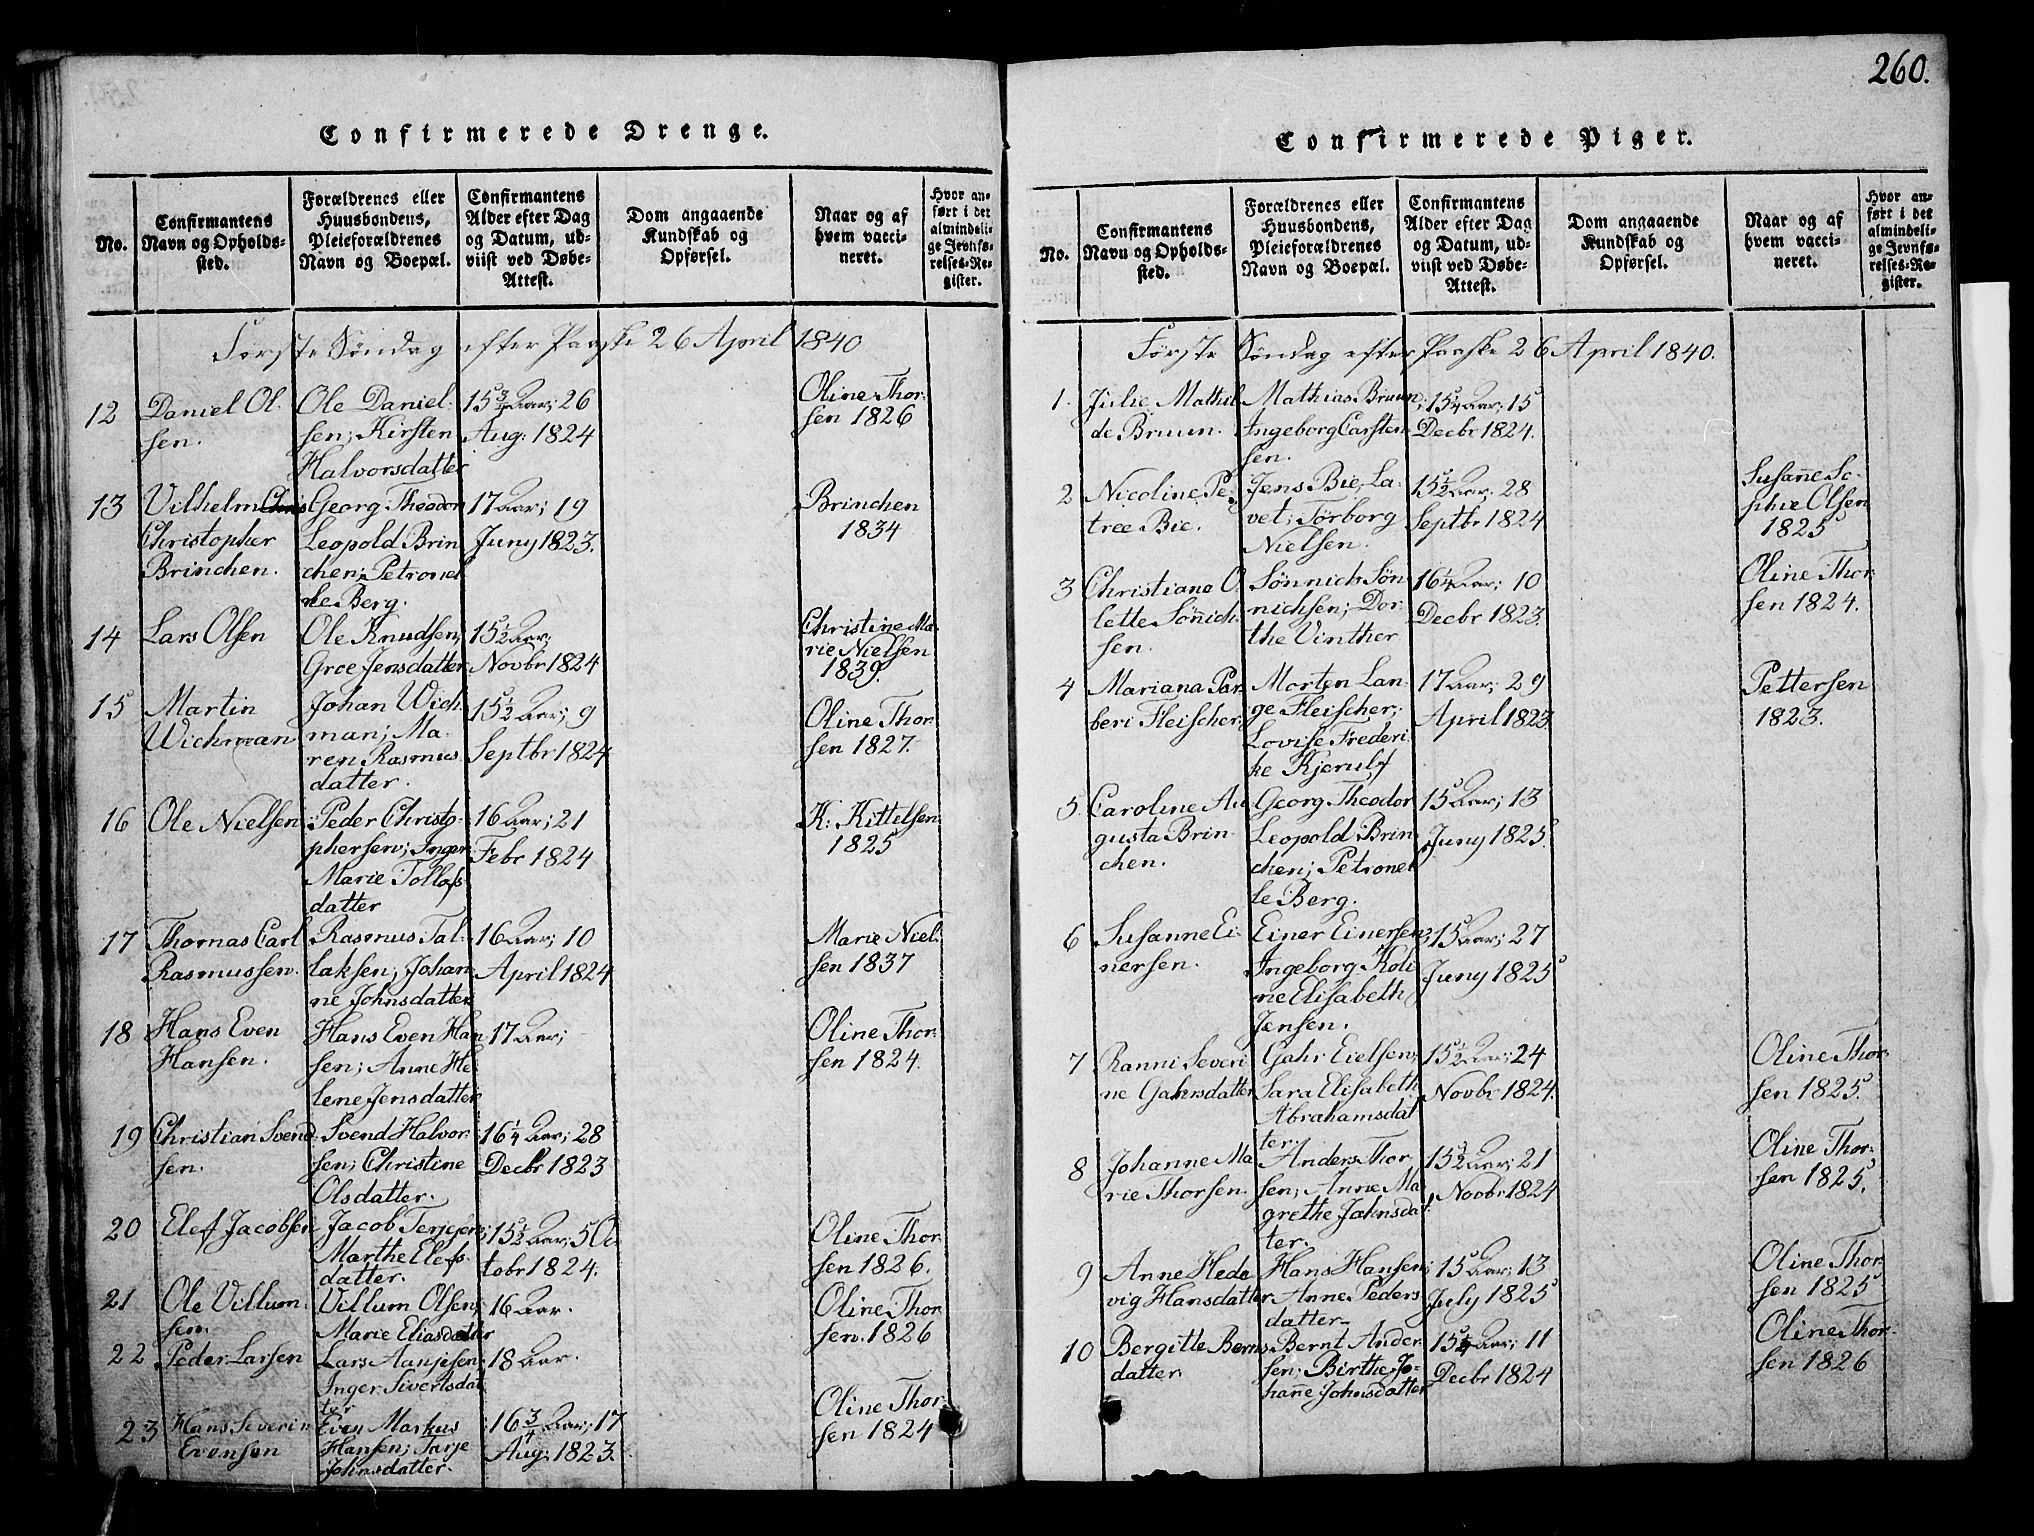 Confirmerede Drenge.
No.
Confirmantens
Navn og Opholds-
sted.
Forældrenes eller
Huusbondens,
Pleieforældrenes
Navn og Boepæl.
Confirmantens
Alder efter Dag
og Datum, ud-
viist ved Døbe-
Attest.
Dom angaaende
Kundskab og
Opførsel.
Naar og af
hvem vacci-
neret.
Hvor an-
ført i det
almindeli-
ge Jevnfø-
relses-Re-
gister.
Første Søndag efter Paaske 26 April 1840
12
Daniel Ol-
sen.
Ole Daniel-
sen; Kirsten
Halvorsdatter
15 3/4 Aar; 26
Aug: 1824
Oline Thor-
sen 1826
13
Vilhelm
Christopher
Brinchen.
Georg Theodor
Leopold Brin
chen; Petronel
le Berg.
17 Aar; 19
Juny 1823.
Brinchen
1834
14
Lars Olsen
Ole Knudsen;
Groe Jensdatter
15 1/2 Aar;
Novbr 1824
Christine Ma-
rie Nielsen
1839.
15
Martin
Wichman
Johan Wich-
man; Ma-
ren Rasmus
datter.
15 1/2 Aar; 9
Septbr 1824
Oline Thor-
sen 1827.
16
Ole Nielsen
Peder Christo-
phersen; Inger
Marie Tollofs
datter
16 Aar; 21
Febr 1824
K: Kittelsen
1825
17
Thomas Carl
Rasmussen.
Rasmus Tal-
laksen; Johan
ne Johnsdatter
16 Aar; 10
April 1824
Marie Niel-
sen 1837
18
Hans Even
Hansen.
Hans Even Han
sen; Anne He-
lene Jensdatter
17 Aar;
Oline Thor-
sen 1824.
19
Christian Svend-
sen.
Svend Halvor-
sen; Christine
Olsdatter.
16 1/4 Aar; 28
Decbr 1823
20
Elef Jacobsen
Jacob Terjesen;
Marthe Elefs
datter.
15 1/2 Aar; 5 Oc
tobr 1824.
Oline Thor-
sen 1826.
21
Ole Villum-
sen.
Villum Olsen;
Marie Eliasdatter
16 Aar.
Oline Thor
sen. 1826
22
Peder Larsen
Lars Aanjesen
Inger Sivertsdat
ter
18 Aar.
23
Hans Severin
Evensen
Even Markus
Hansen; Tarje
Johnsdatter.
16 3/4 Aar; 17
Aug: 1823.
Oline Thor-
sen 1824
260.
Confirmerede Piger.
No.
Confirmantens
Navn og Opholds-
sted.
Forældrenes eller
Huusbondens,
Pleieforældrenes
Navn og Boepæl.
Confirmantens
Alder efter Dag
og Datum, ud-
viist ved Døbe-
Attest.
Dom angaaende
Kundskab og
Opførsel.
Naar og af
hvem vacci-
neret.
Hvor an-
ført i det
almindeli-
ge Jevnfø-
relses-Re-
gister.
Første Søndag efter Paaske 26 April 1840.
1.
Julie Mathil
de Bruun.
Mathias Bruun;
Ingeborg Carsten-
sen.
15 1/4 Aar; 15
Decbr 1824.
2
Nicoline Pe-
tree Bie.
Jens Bie, La-
vet; Torborg
Nielsen.
15 1/2 Aar; 28
Septbr 1824
Susanne So-
phie Olsen
1825
3
Christiane O
lette Sønich-
sen.
Sønnich Søn
nichsen; Dor-
the Vinther
16 1/4 Aar; 10
Decbr 1823.
Oline Thor-
sen 1824.
4
Mariana Bar
beri Fleischer
Morten Lan-
ge Fleischer;
Lovise Frederi-
ke Kjerulf
17 Aar; 29
April 1823
Pettersen
1823.
5.
Caroline Au
gusta Brin-
chen.
Georg Theodor
Leopold Brin-
chen; Petronel
le Berg.
15 Aar; 13
Juny 1825.
6
Susanne Ei-
nersen.
Einer Einersen;
Ingeborg Koli
ne Elisabeth
Jensen.
15 Aar; 27
Juny 1825
7
Ranni Severi
ne Gahrsdatter
Gahr Eielsen;
Sara Elisabeth
Abrahamsdat
ter.
15 1/2 Aar; 24
Novbr 1824.
Oline Thor-
sen 1825.
8
Johanne Ma
rie Thorsen.
Anders Thor-
sen; Anne Ma
grethe Jahnsdat
ter.
15 1/2 Aar; 21
Novbr 1824
Oline Thor-
sen 1825.
9
Anne Hede
vig Hansdatter
Hans Hansen;
Anne Peders
datter
15 Aar; 13
July 1825
Oline Thor
sen 1825
10
Bergitte Bernts
datter
Bernt Ander-
sen; Birthe Jo-
hanne Johnsdatter
15 1/4 Aar; 11
Decbr 1824
Oline Thor-
sen 1826